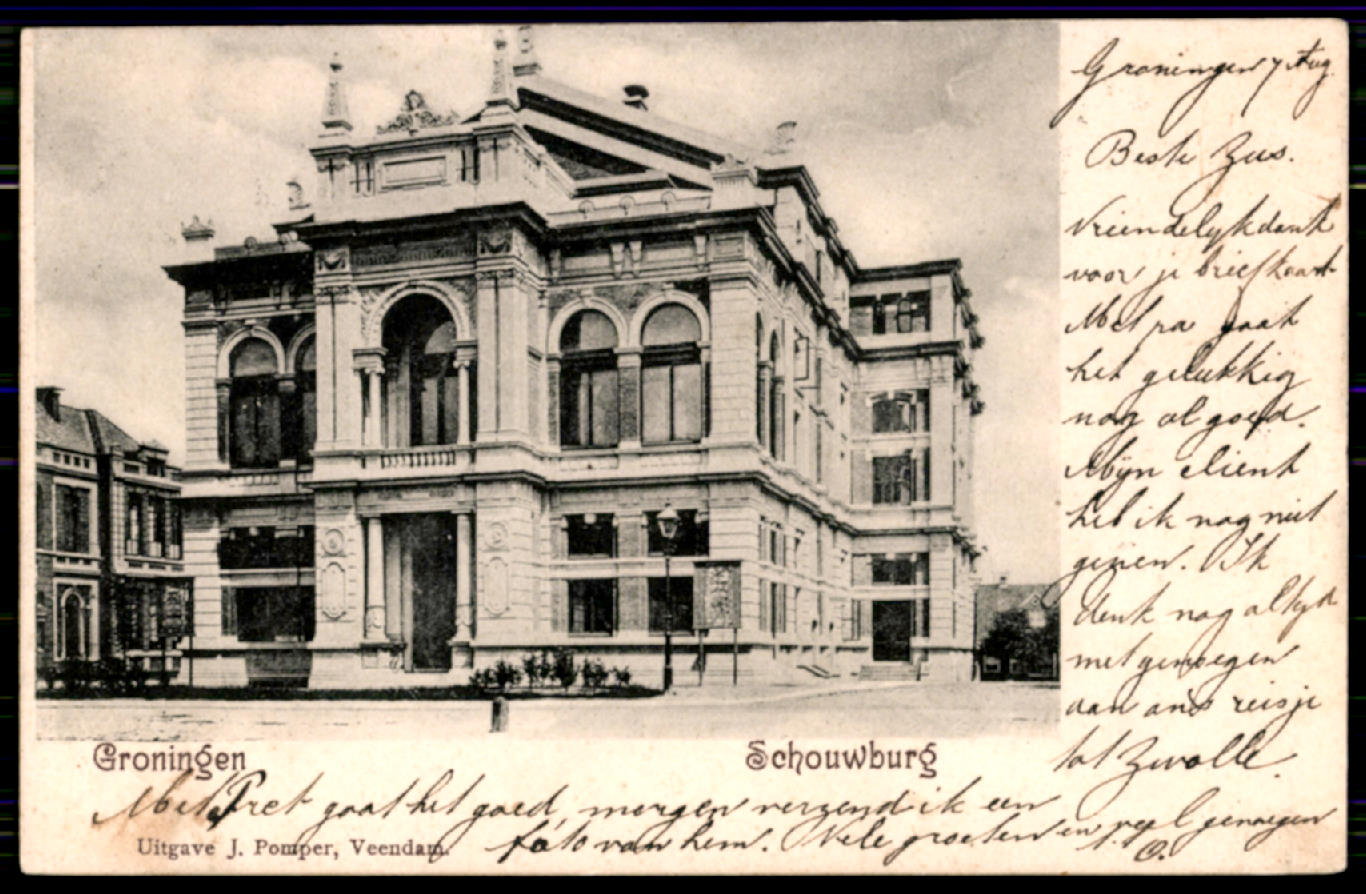 Groningen 7 Aug
Beste Zus.
Vriendelyk dank
voor je briefkaart
Met pa gaat
het gelukkig
nog al goed.
Mijn client
heb ik nog niet
gezien. Ik
denk nog altyd
met genoegen
aan ons reisje
tot Zwolle.
Groningen
Schouwburg
Met Pret gaat het goed, morgen verzend ik een
foto van hem. Vele groeten en veel genoegen
Uitgave J. Pomper, Veendam.